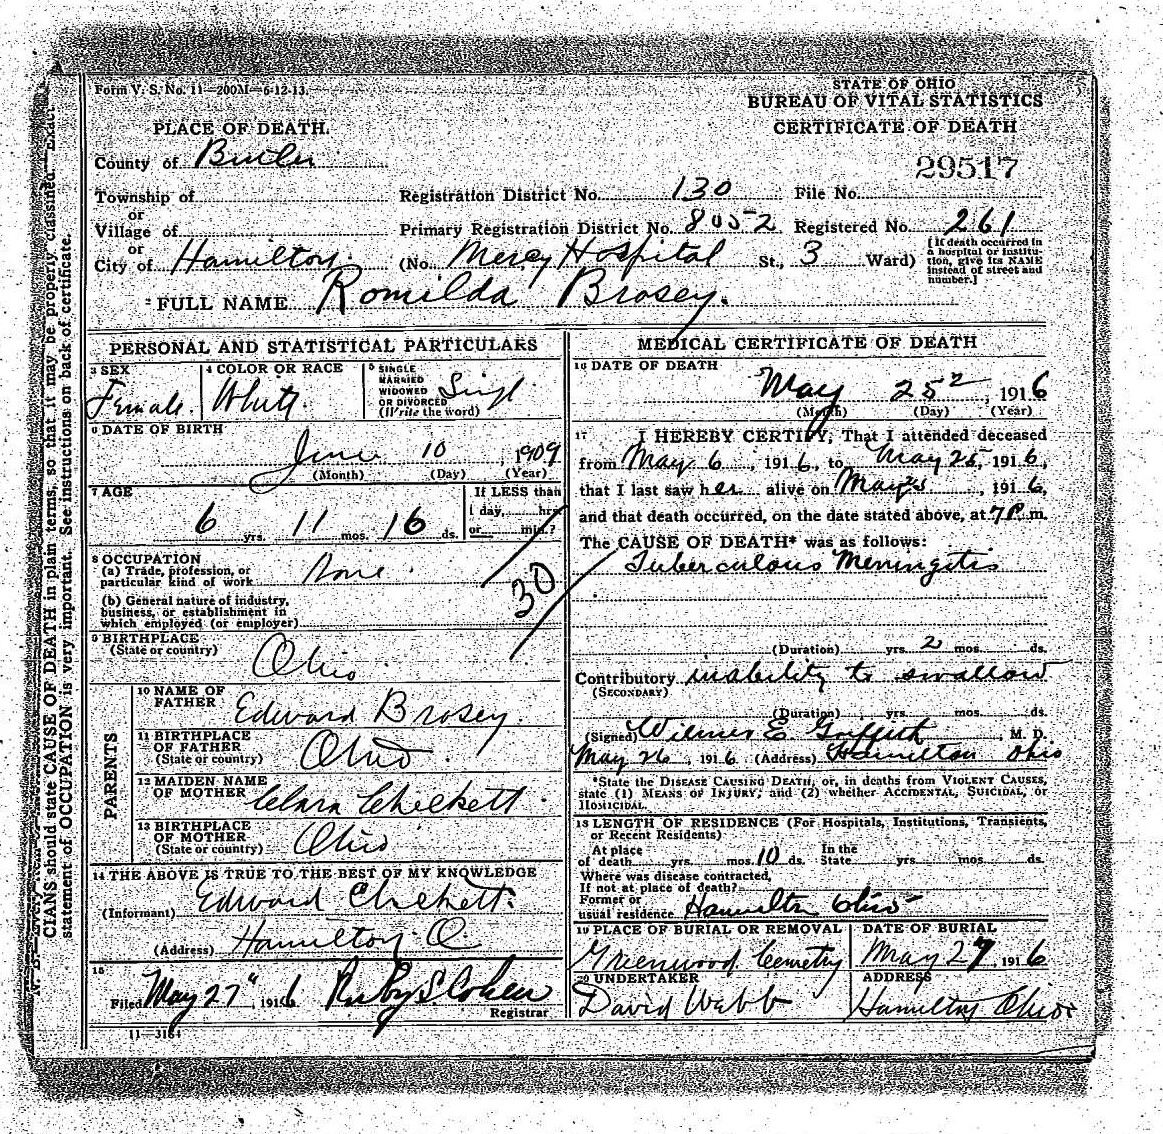 Form V. S. No. 11—200M—6-12-13.
STATE OF OHIO
BUREAU OF VITAL STATISTICS
CERTIFICATE OF DEATH
29517
PLACE OF DEATH.
County of Butler
Township of
Registration District No. 130
File No.
or
Village of
Primary Registration District No. 8052
Registered No. 261
or
City of Hamilton
(No. Mercy Hospital St., 3 Ward)
[If death occurred in
a hospital or institu-
tion, give its NAME
instead of street and
number.]
2 FULL NAME Romilda Brosey.
PERSONAL AND STATISTICAL PARTICULARS
3 SEX
Female
4 COLOR OR RACE
White
5 SINGLE
MARRIED
WIDOWED
OR DIVORCED
(Write the word)
Singl
6 DATE OF BIRTH
June 10, 1909
(Month) (Day) (Year)
7 AGE
6 yrs. 11 mos. 16 ds.
If LESS than
1 day, hrs.
or min.?
8 OCCUPATION
(a) Trade, profession, or
particular kind of work None
(b) General nature of industry,
business, or establishment in
which employed (or employer)
30
9 BIRTHPLACE
(State or country)
Ohio
PARENTS
10 NAME OF
FATHER
Edward Brosey
11 BIRTHPLACE
OF FATHER
(State or country)
Ohio
12 MAIDEN NAME
OF MOTHER
Clara Checkett
13 BIRTHPLACE
OF MOTHER
(State or country)
Ohio
14 THE ABOVE IS TRUE TO THE BEST OF MY KNOWLEDGE
(Informant) Edward Checkett.
(Address) Hamilton O.
15
Filed May 27", 1916 Ruby S. Cohen
Registrar
11—3184
MEDICAL CERTIFICATE OF DEATH
16 DATE OF DEATH
May 25, 1916
(Month) (Day) (Year)
17 I HEREBY CERTIFY, That I attended deceased
from May 6, 1916, to May 25, 1916,
that I last saw her alive on May 25, 1916,
and that death occurred, on the date stated above, at 7 P m.
The CAUSE OF DEATH* was as follows:
Tuberculous Meningitis
(Duration) yrs. 2 mos. ds.
Contributory inability to swallow
(SECONDARY)
(Duration) yrs. mos. ds.
(Signed) Wilmer E Griffith M. D.
May 26, 1916 (Address) Hamilton Ohio
*State the DISEASE CAUSING DEATH, or, in deaths from VIOLENT CAUSES,
state (1) MEANS OF INJURY; and (2) whether ACCIDENTAL, SUICIDAL, or
HOMICIDAL.
18 LENGTH OF RESIDENCE (For Hospitals, Institutions, Transients,
or Recent Residents)
At place
of death yrs. mos. 10 ds.
In the
State yrs. mos. ds.
Where was disease contracted,
If not at place of death?
Former or
usual residence Hamilton Ohio
19 PLACE OF BURIAL OR REMOVAL
Greenwood Cemetry
DATE OF BURIAL
May 27, 1916
20 UNDERTAKER
David Webb
ADDRESS
Hamilton Ohio
CIANS should state CAUSE OF DEATH in plain terms, so that it may be properly classified. Exact
statement of OCCUPATION is very important. See instructions on back of certificate.